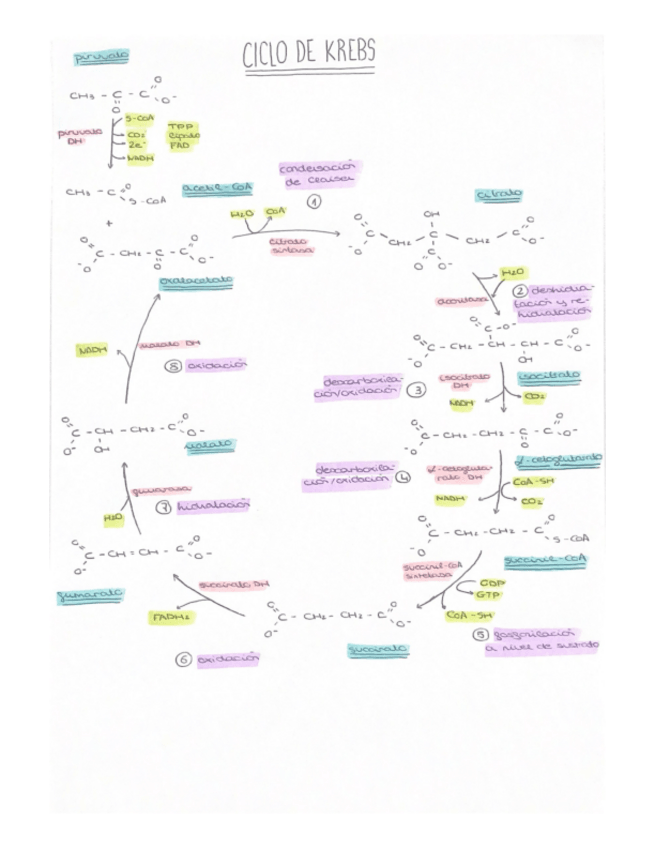 CICLO DE KREBS
piruvato
CH₃ - C - C O O-
O
S-CoA
CO₂
2e-
NADH
TPP
Lipoato
FAD
piruvato
DH
CH₃ - C O S-CoA
acetil-CoA
+
O O- C - CH₂ - C - C O O-
O
oxalacetato
condensación
de Claisen
1
H₂O CoA
citrato
sintasa
citrato
OH
O O- C - CH₂ - C - CH₂ - C O O-
C O O-
H₂O
aconitasa
2 deshidra-
tación y re-
hidratación
C O O-
O O- C - CH₂ - CH - CH - C O O-
OH
isocitrato
descarboxila-
ción/oxidación
3
isocitrato
DH
NADH
CO₂
O O- C - CH₂ - CH₂ - C - C O O-
O
α-cetoglutarato
descarboxila-
ción/oxidación
4
α-cetogluta-
rato DH
NADH
CoA-SH
CO₂
O O- C - CH₂ - CH₂ - C O S-CoA
succinil-CoA
succinil-CoA
sintetasa
GDP
GTP
CoA-SH
5 fosforilación
a nivel de sustrato
O O- C - CH₂ - CH₂ - C O O-
succinato
succinato DH
FADH₂
6 oxidación
O O- C - CH = CH - C O O-
fumarato
fumarasa
H₂O
7 hidratación
O O- C - CH - CH₂ - C O O-
OH
malato
malato DH
NADH
8 oxidación